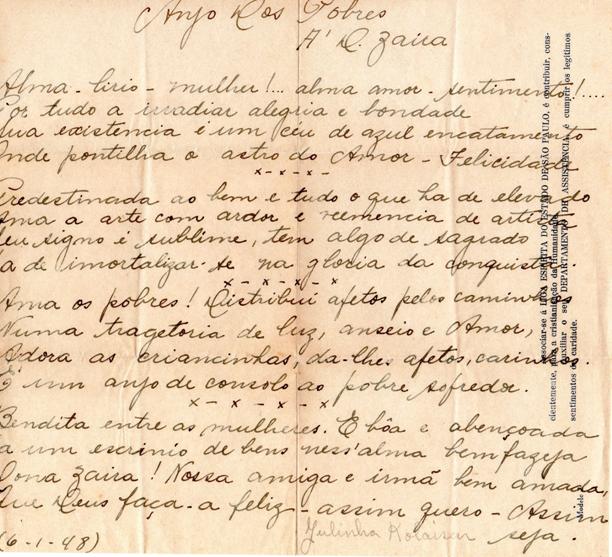 Anjo Dos Pobres
A' D. Zaira
Alma - lirio - mulher!... alma amor - sentimento!....
Por tudo a irradiar alegria e bondade
Sua existencia é um céu de azul encatamento
Onde pontilha o astro do Amor - Felicidade
- x - x - x -
Predestinada ao bem e tudo o que ha de elevado
Ama a arte com ardor e veemencia de artista
Seu signo é sublime, tem algo de sagrado
a de imortalizar-se na gloria da conquista.
- x - x - x - x - x
Ama os pobres! Distribui afetos pelos caminhos
Numa tragetoria de luz, anseio e Amor,
Adora as criancinhas, da-lhes afetos, carinhos.
É um anjo de consolo ao pobre sofredor.
x - x - x - x
Bendita entre as mulheres. E bôa e abençoada
a um escrinio de bens ness'alma bemfazeja
Dona Zaira! Nossa amiga e irmã bem amada,
Que Deus faça-a feliz - assim quero - Assim
seja.
(6-1-48)
Julinha
associar-se á LIGA ESPIRITA DO ESTADO DE SÃO PAULO, é contribuir, cons-
cientemente, para a cristianização da Humanidade.
Auxiliar o seu DEPARTAMENTO DE ASSISTENCIA, é cumprir os legitimos
sentimentos de caridade.
Modelo